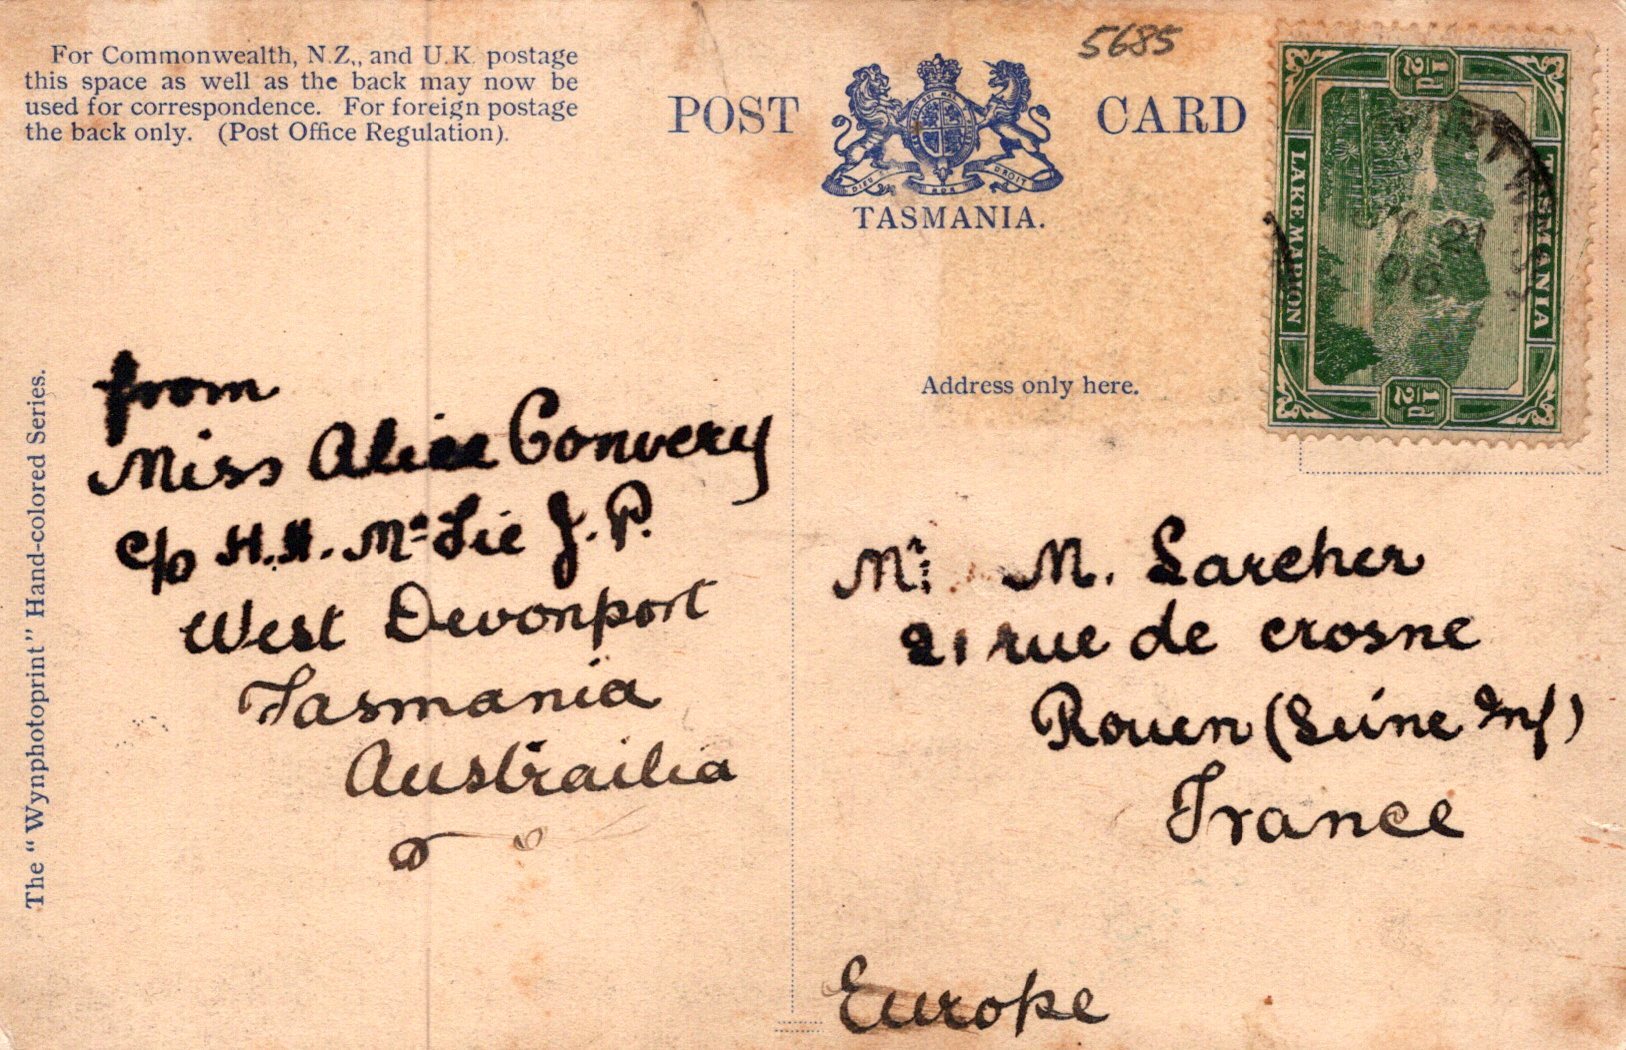 For Commonwealth, N.Z., and U.K. postage
this space as well as the back may now be
used for correspondence. For foreign postage
the back only. (Post Office Regulation).
POST CARD
DIEU ET MON DROIT
TASMANIA.
5685
TASMANIA
LAKE MARION
½d
½d
JY 21
06
Address only here.
The "Wynphotoprint" Hand-colored Series.
from
Miss Alice Convery
c/o H.H. McFie J.P.
West Devonport
Tasmania
Austrailia
Mr M. Larcher
21 rue de crosne
Rouen (Seine Inf)
France
Europe